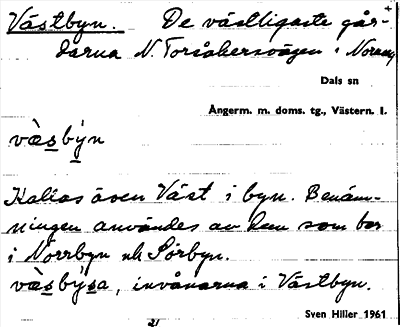 Västbyn. De västligaste går-
darna N. Torsåkersvägen i Norum
Dals sn
Ångerm. m. doms. tg., Västern. l.
vä̀sbýn
Kallas även Väst i byn. Benäm-
ningen användes av dem som bor
i Norrbyn och Sörbyn.
vä̀sbýsa, invånarna i Västbyn.
21
Sven Hiller 1961